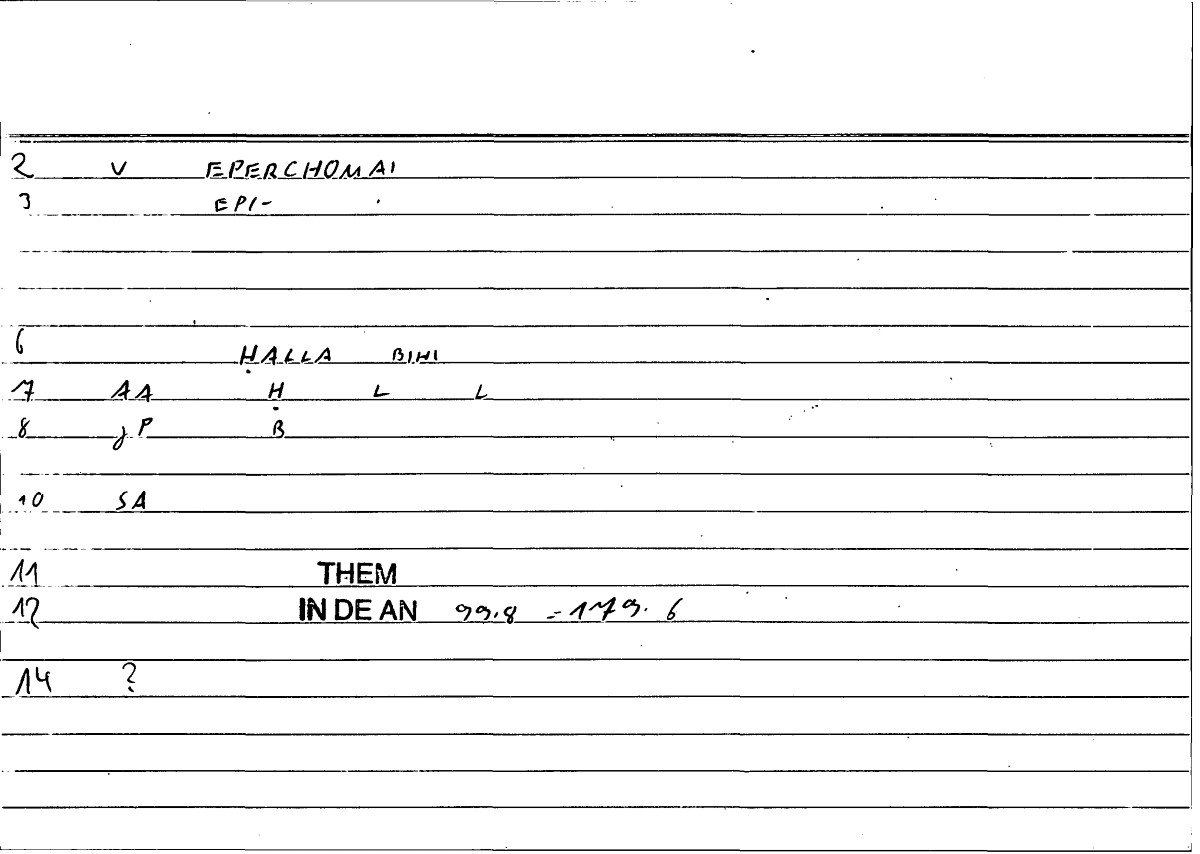 2 V EPERCHOMAI
3 EPI-
6 ḤALLA BIHI
7 AA Ḥ L L
8 jP B
10 SA
11 THEM
12 IN DE AN 99.8 = 179.6
14 ?